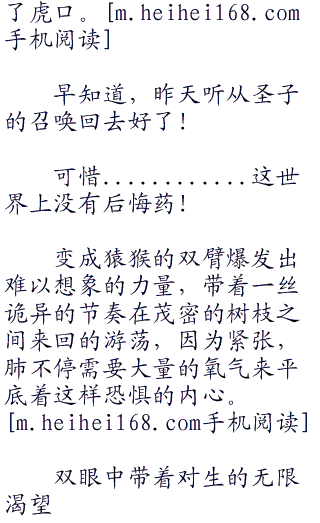 了虎口。[m.heihei168.com
手机阅读]
早知道，昨天听从圣子
的召唤回去好了！
可惜............这世
界上没有后悔药！
变成猿猴的双臂爆发出
难以想象的力量，带着一丝
诡异的节奏在茂密的树枝之
间来回的游荡，因为紧张，
肺不停需要大量的氧气来平
底着这样恐惧的内心。
[m.heihei168.com手机阅读]
双眼中带着对生的无限
渴望